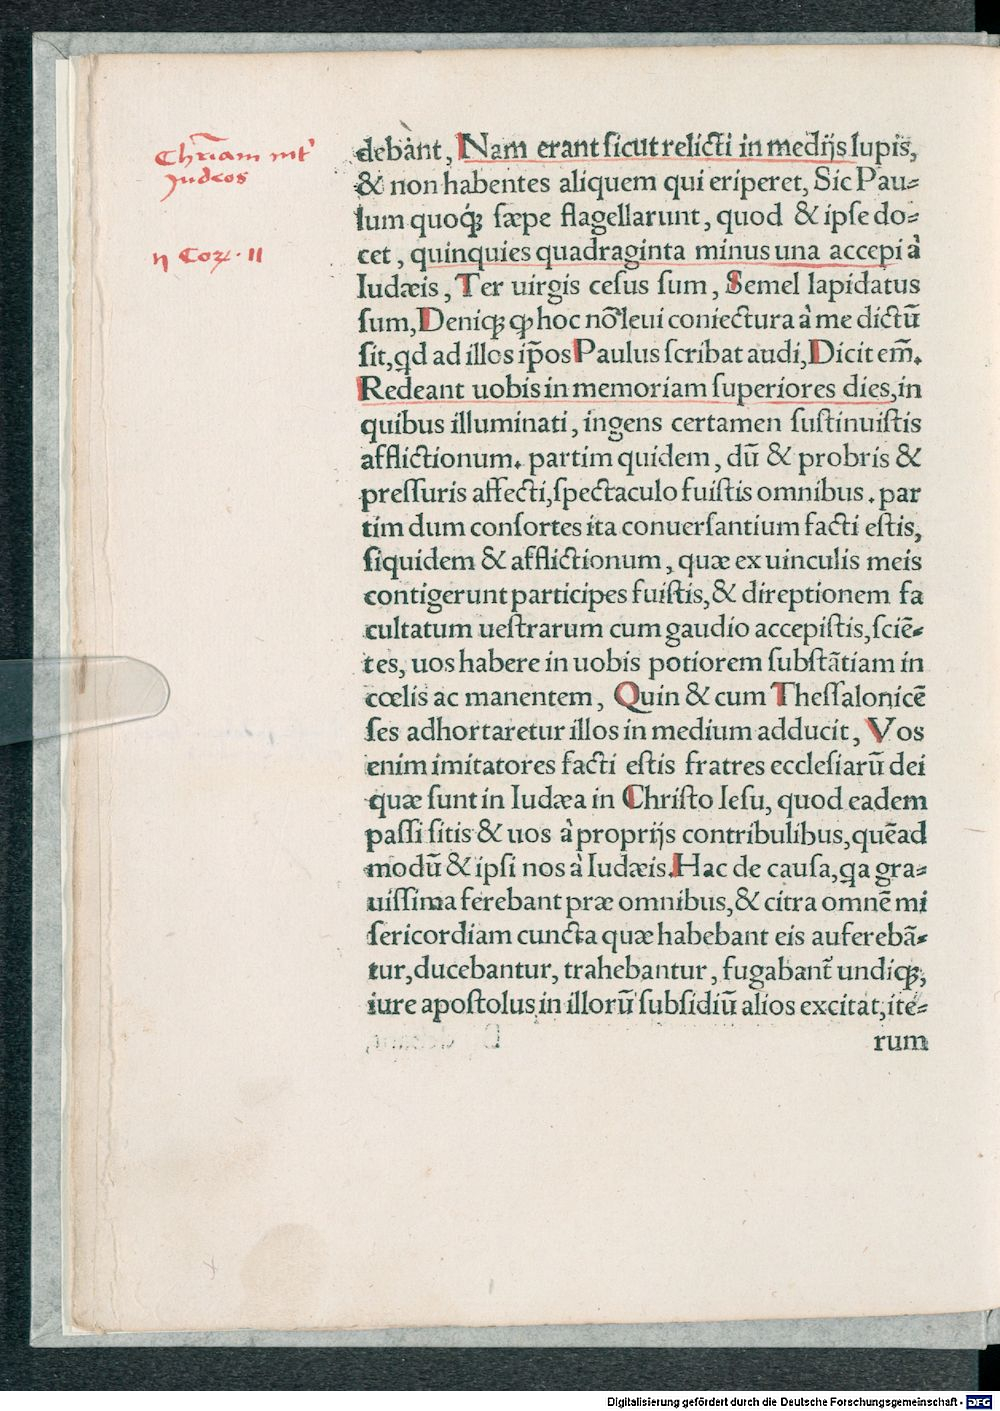 Chr̄iam int'
Judeos
debànt, Nam erant sicut relicti in medijs lupis,
& non habentes aliquem qui eriperet, Sic Pau⸗
lum quoq́; sæpe flagellarunt, quod & ipse do⸗
ij Coꝝ. 11
cet, quinquies quadraginta minus una accepi à
Iudæis, Ter uirgis cesus sum, Semel lapidatus
sum, Deniq; ꝙ hoc nō leui coniectura à me dictū
sit, qd ad illos ip̄os Paulus scribat audi, Dicit em̄.
Redeant uobis in memoriam superiores dies, in
quibus illuminati, ingens certamen sustinuistis
afflictionum. partim quidem, dū & probris &
pressuris affecti, spectaculo fuistis omnibus. par
tim dum consortes ita conuersantium facti estis,
siquidem & afflictionum, quæ ex uinculis meis
contigerunt participes fuistis, & direptionem fa
cultatum uestrarum cum gaudio accepistis, sciē⸗
tes, uos habere in uobis potiorem substātiam in
cœlis ac manentem, Quin & cum Thessalonicē
ses adhortaretur illos in medium adducit, Vos
enim imitatores facti estis fratres ecclesiarū dei
quæ sunt in Iudæa in Christo Iesu, quod eadem
passi sitis & uos à proprijs contribulibus, quēad
modū & ipsi nos à Iudæis. Hac de causa, qa gra⸗
uissima ferebant præ omnibus, & citra omnē mi
sericordiam cuncta quæ habebant eis auferebā⸗
tur, ducebantur, trahebantur, fugabant̄ undiq;,
iure apostolus in illorū subsidiū alios excitat, ite⸗
rum
Digitalisierung gefördert durch die Deutsche Forschungsgemeinschaft - DFG